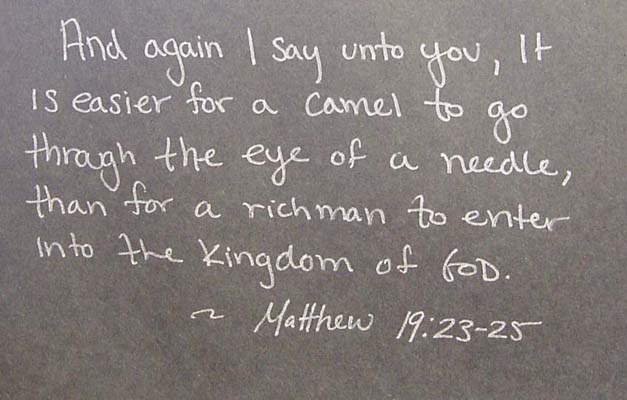 And again I say unto you, It
is easier for a camel to go
thragh the eye of a needle,
than for a richman to enter
into the Kingdom of GOD.
~ Matthew 19:23-25